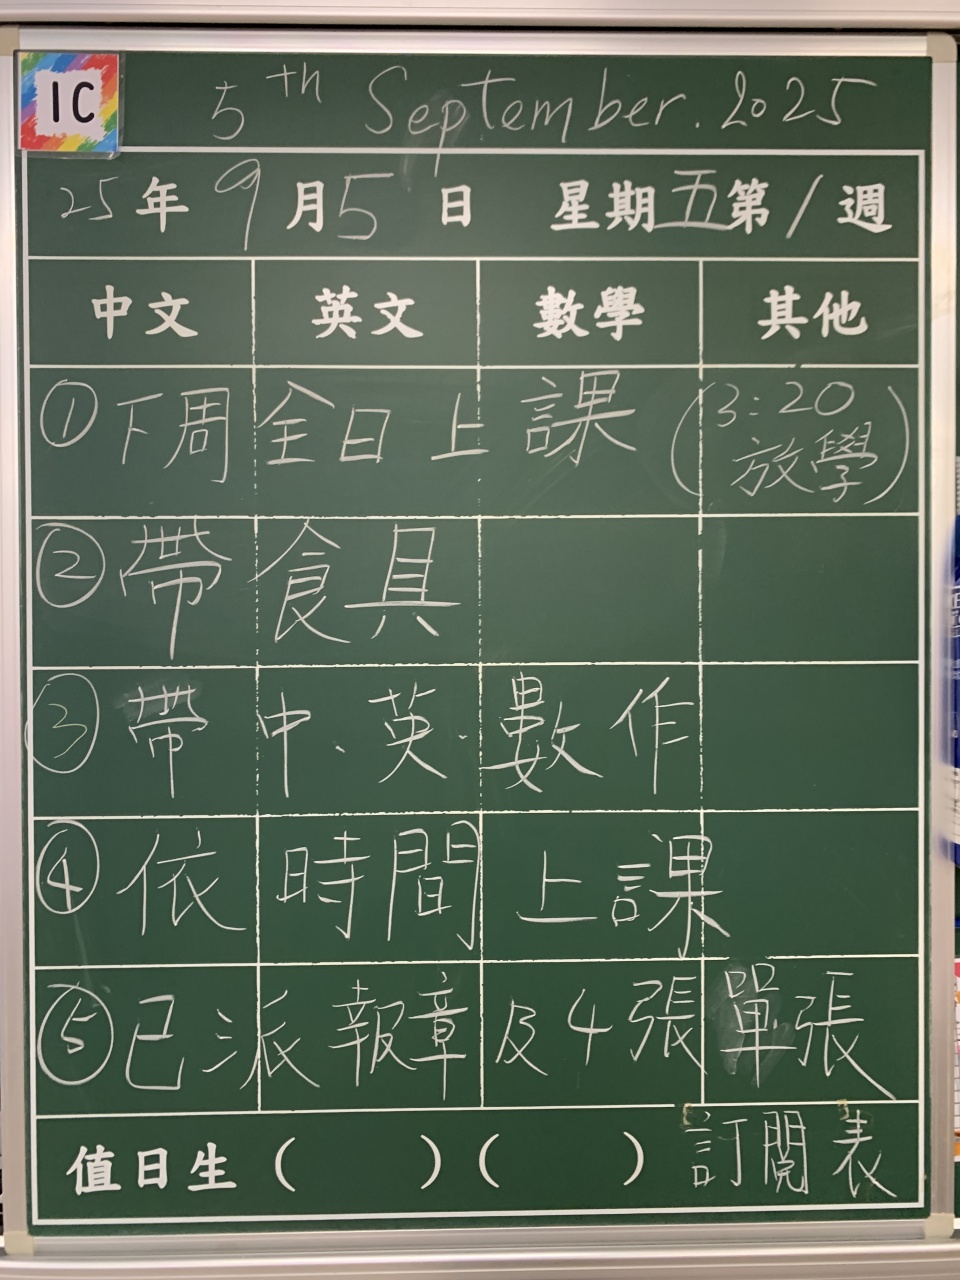 1C
5th September. 2025
25年9月5日 星期五第1週
中文 英文 數學 其他
①下周全日上課 (3:20放學)
②帶食具
③帶中、英、數作
④依時間上課
⑤已派報章及4張單張
值日生( )( ) 訂閱表